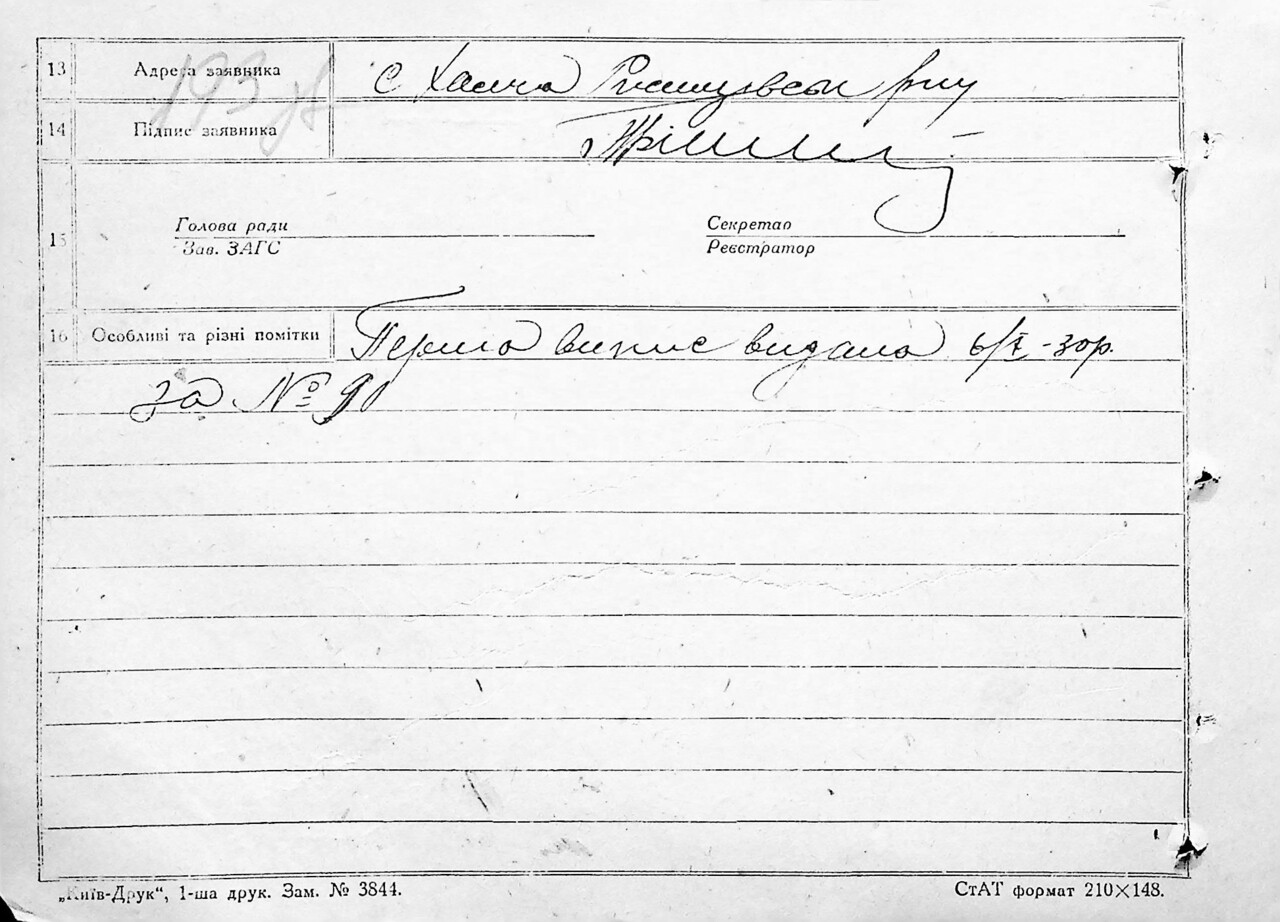 13 Адреса заявника с Халча Ржищівськ рну
14 Підпис заявника
193
15 Голова ради Секретар
Зав. ЗАГС Реєстратор
16 Особливі та різні помітки Перша випис видана 6/I-30р.
за № 90
„Київ-Друк“, 1-ша друк. Зам. № 3844. СтАТ формат 210×148.